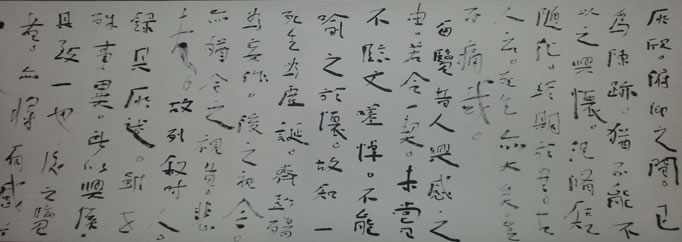 所欣。俯仰之間。已
為陳跡。猶不能不
以之興懷。況脩短
隨化。終期於盡。古
人云。死生亦大矣。豈
不痛哉。
每覽昔人興感之
由。若合一契。未嘗
不臨文嗟悼。不能
喻之於懷。故知一
死生為虛誕。齊彭殤
為妄作。後之視今。
亦猶今之視昔。悲
夫。故列敘時人。
錄其所述。雖世
殊事異。所以興懷。
其致一也。後之覽
者。亦將有感